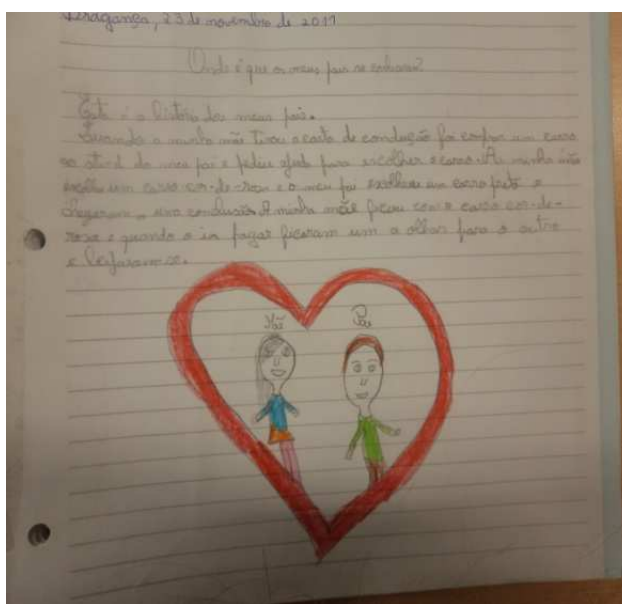 Bragança, 23 de novembro de 2017
Onde é que os meus pais se conheceram?
Esta é a história dos meus pais.
Quando a minha mãe tirou a carta de condução foi comprar um carro
ao stand do meu pai e pediu ajuda para escolher o carro. A minha mãe
escolheu um carro cor-de-rosa e o meu pai escolheu um carro preto e
chegaram a uma conclusão. A minha mãe ficou com o carro cor-de-
rosa e quando o ia pagar ficaram um a olhar para o outro
e beijaram-se.
Mãe
Pai